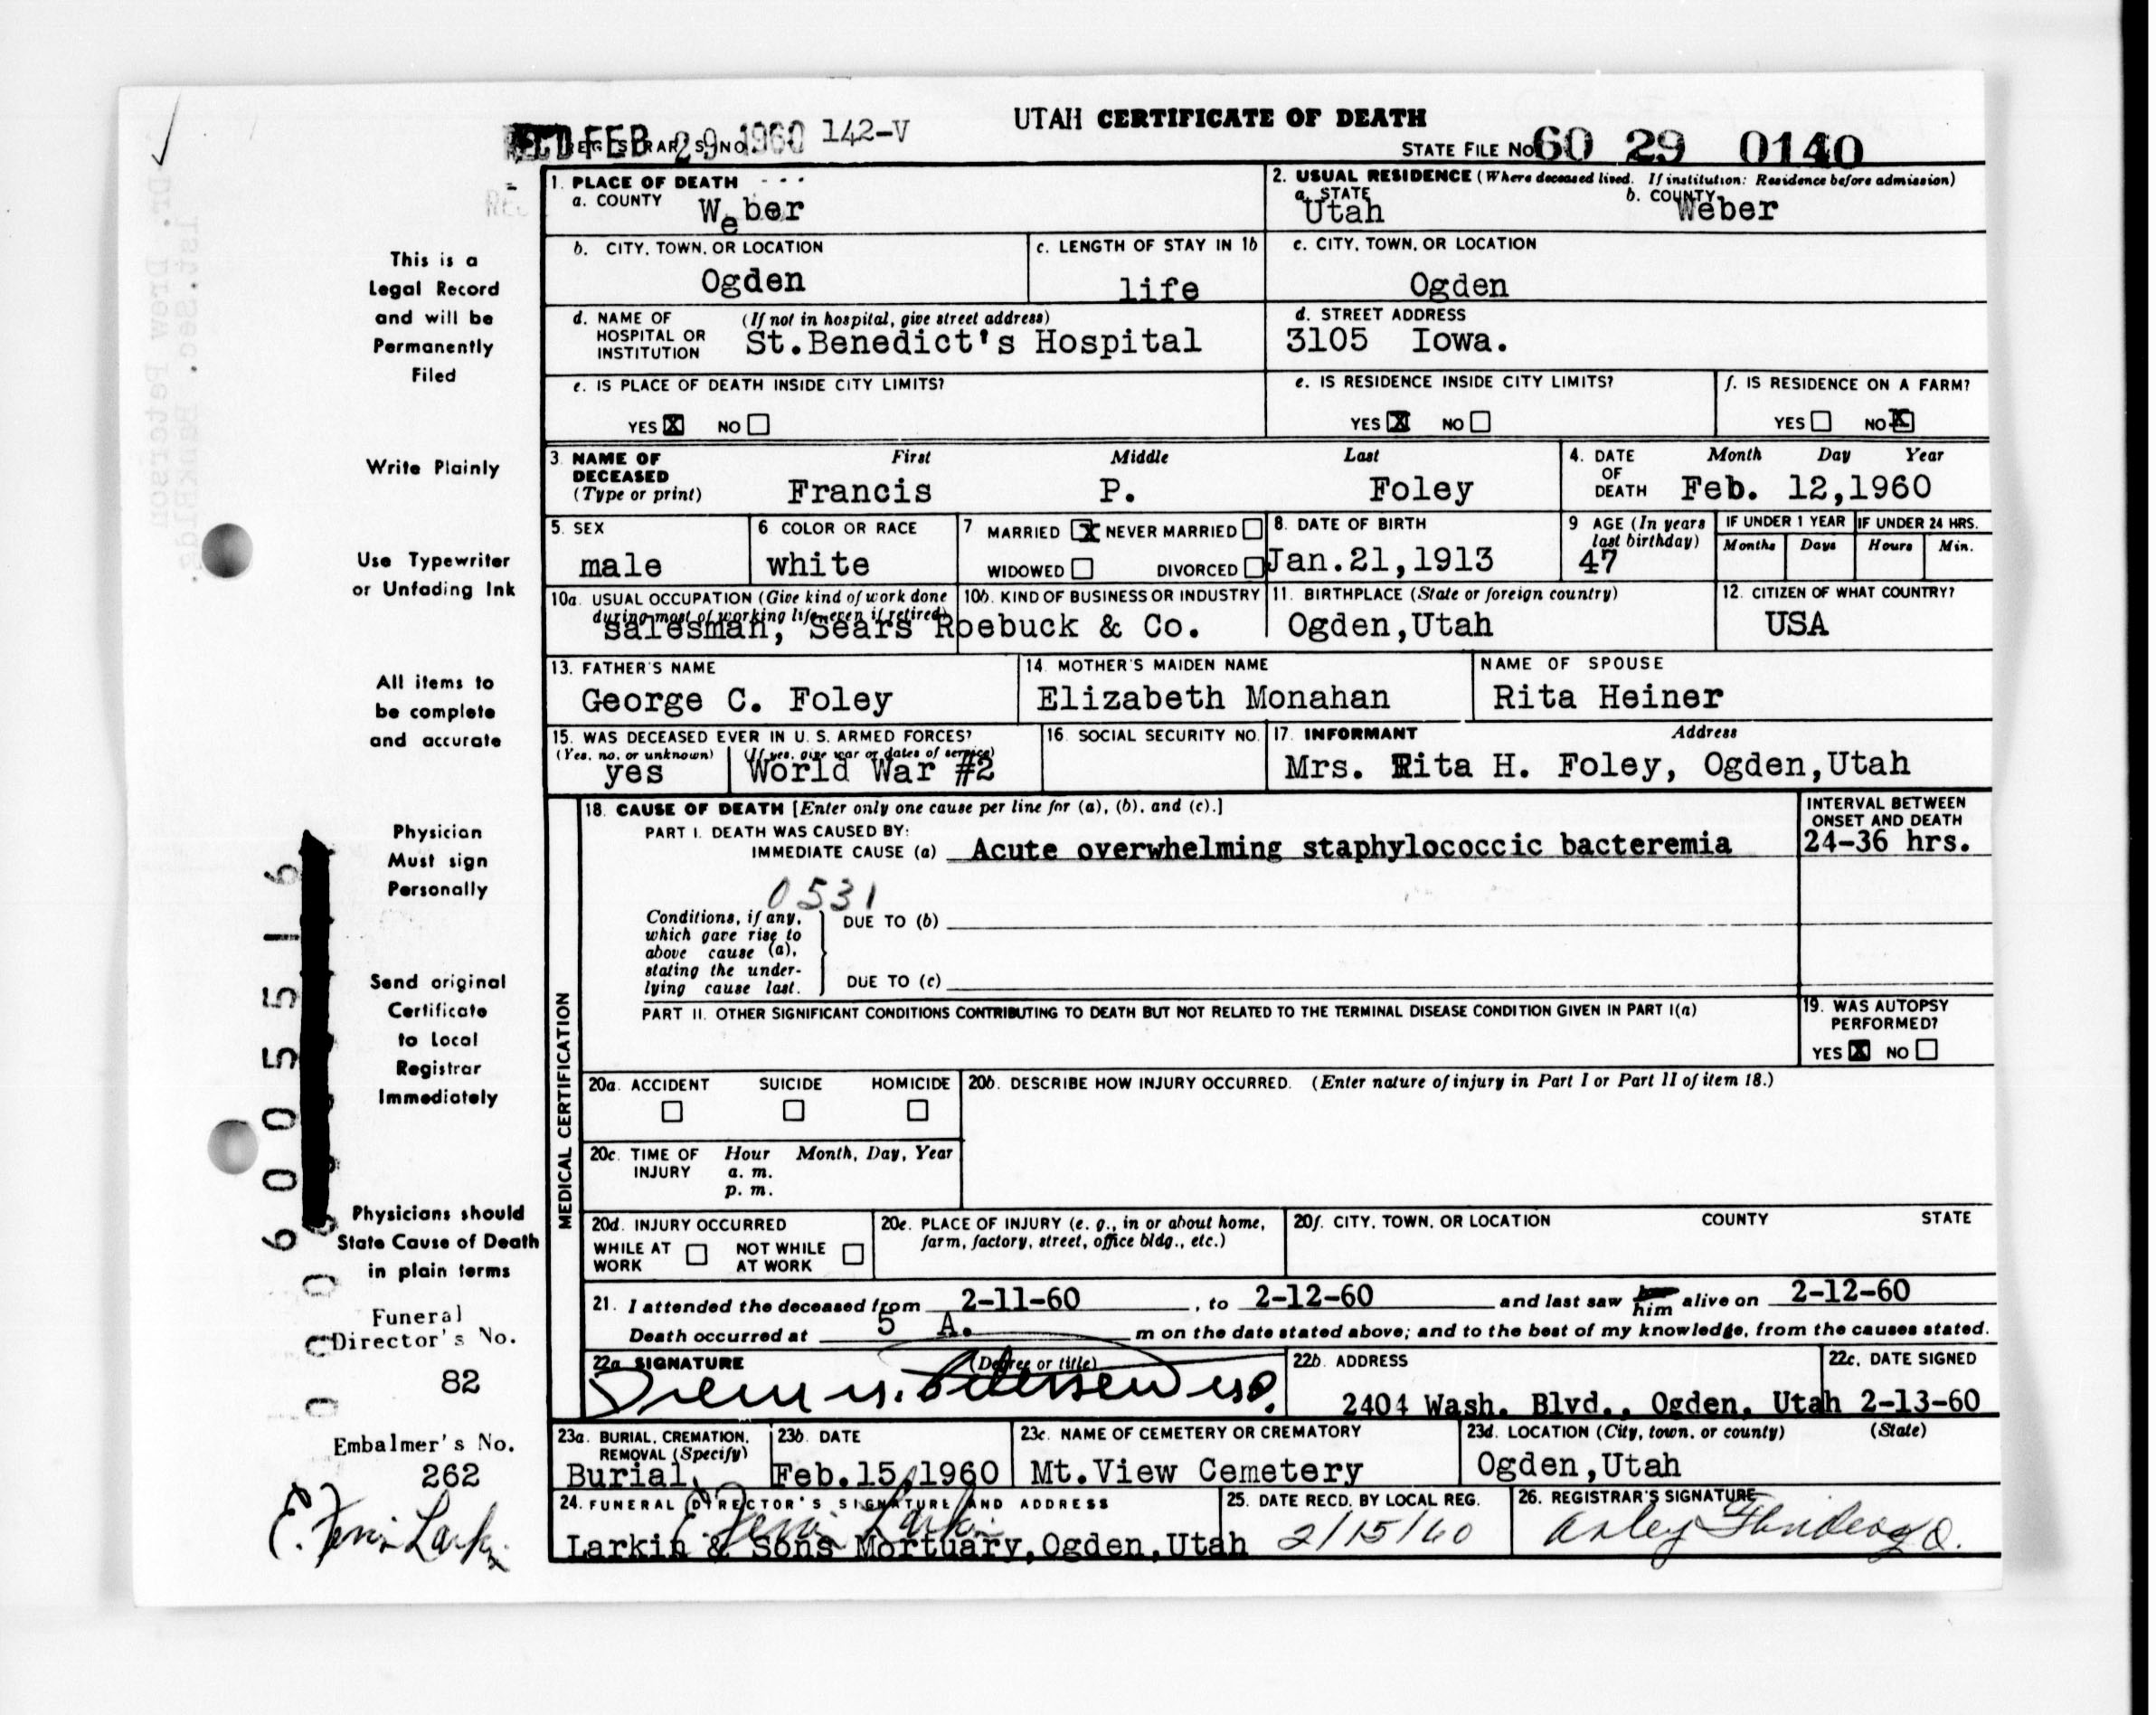 UTAH CERTIFICATE OF DEATH
REC'D FEB 29 1960 142-V
STATE FILE No 60 29 0140
1. PLACE OF DEATH
a. COUNTY Weber
2. USUAL RESIDENCE (Where deceased lived. If institution: Residence before admission)
a. STATE Utah b. COUNTY Weber
b. CITY, TOWN, OR LOCATION Ogden
c. LENGTH OF STAY IN 1b life
c. CITY, TOWN, OR LOCATION Ogden
d. NAME OF HOSPITAL OR INSTITUTION (If not in hospital, give street address) St.Benedict's Hospital
d. STREET ADDRESS 3105 Iowa.
e. IS PLACE OF DEATH INSIDE CITY LIMITS?
YES X NO
e. IS RESIDENCE INSIDE CITY LIMITS?
YES X NO
f. IS RESIDENCE ON A FARM?
YES NO X
3. NAME OF DECEASED (Type or print) First Middle Last
Francis P. Foley
4. DATE OF DEATH Month Day Year
Feb. 12,1960
5. SEX male
6. COLOR OR RACE white
7 MARRIED X NEVER MARRIED
WIDOWED DIVORCED
8. DATE OF BIRTH Jan.21,1913
9 AGE (In years last birthday) 47
IF UNDER 1 YEAR IF UNDER 24 HRS.
Months Days Hours Min.
10a. USUAL OCCUPATION (Give kind of work done during most of working life, even if retired)
10b. KIND OF BUSINESS OR INDUSTRY
salesman, Sears Roebuck & Co.
11. BIRTHPLACE (State or foreign country) Ogden,Utah
12. CITIZEN OF WHAT COUNTRY? USA
13. FATHER'S NAME George C. Foley
14. MOTHER'S MAIDEN NAME Elizabeth Monahan
NAME OF SPOUSE Rita Heiner
15. WAS DECEASED EVER IN U. S. ARMED FORCES?
(Yes, no, or unknown) yes (If yes, give war or dates of service) World War #2
16. SOCIAL SECURITY NO.
17. INFORMANT Address
Mrs. Rita H. Foley, Ogden,Utah
MEDICAL CERTIFICATION
18. CAUSE OF DEATH [Enter only one cause per line for (a), (b), and (c).]
PART I. DEATH WAS CAUSED BY:
IMMEDIATE CAUSE (a) Acute overwhelming staphylococcic bacteremia
INTERVAL BETWEEN ONSET AND DEATH
24-36 hrs.
0531
Conditions, if any, which gave rise to above cause (a), stating the underlying cause last.
DUE TO (b)
DUE TO (c)
PART II. OTHER SIGNIFICANT CONDITIONS CONTRIBUTING TO DEATH BUT NOT RELATED TO THE TERMINAL DISEASE CONDITION GIVEN IN PART I(a)
19. WAS AUTOPSY PERFORMED?
YES X NO
20a. ACCIDENT SUICIDE HOMICIDE
20b. DESCRIBE HOW INJURY OCCURRED. (Enter nature of injury in Part I or Part II of item 18.)
20c. TIME OF INJURY Hour Month, Day, Year
a. m.
p. m.
20d. INJURY OCCURRED
WHILE AT WORK NOT WHILE AT WORK
20e. PLACE OF INJURY (e. g., in or about home, farm, factory, street, office bldg., etc.)
20f. CITY, TOWN, OR LOCATION COUNTY STATE
21. I attended the deceased from 2-11-60, to 2-12-60 and last saw him alive on 2-12-60
Death occurred at 5 A. m on the date stated above; and to the best of my knowledge, from the causes stated.
22a SIGNATURE (Degree or title)
Drew M. Petersen MD.
22b. ADDRESS 2404 Wash. Blvd., Ogden, Utah
22c. DATE SIGNED 2-13-60
23a. BURIAL, CREMATION, REMOVAL (Specify) Burial
23b. DATE Feb.15,1960
23c. NAME OF CEMETERY OR CREMATORY Mt.View Cemetery
23d. LOCATION (City, town, or county) (State)
Ogden,Utah
24. FUNERAL DIRECTOR'S SIGNATURE AND ADDRESS
Larkin & Sons Mortuary,Ogden,Utah
25. DATE RECD. BY LOCAL REG. 2/15/60
26. REGISTRAR'S SIGNATURE
This is a
Legal Record
and will be
Permanently
Filed
Write Plainly
Use Typewriter
or Unfading Ink
All items to
be complete
and accurate
Physician
Must sign
Personally
Send original
Certificate
to Local
Registrar
Immediately
Physicians should
State Cause of Death
in plain terms
Funeral
Director's No.
82
Embalmer's No.
262
6005516